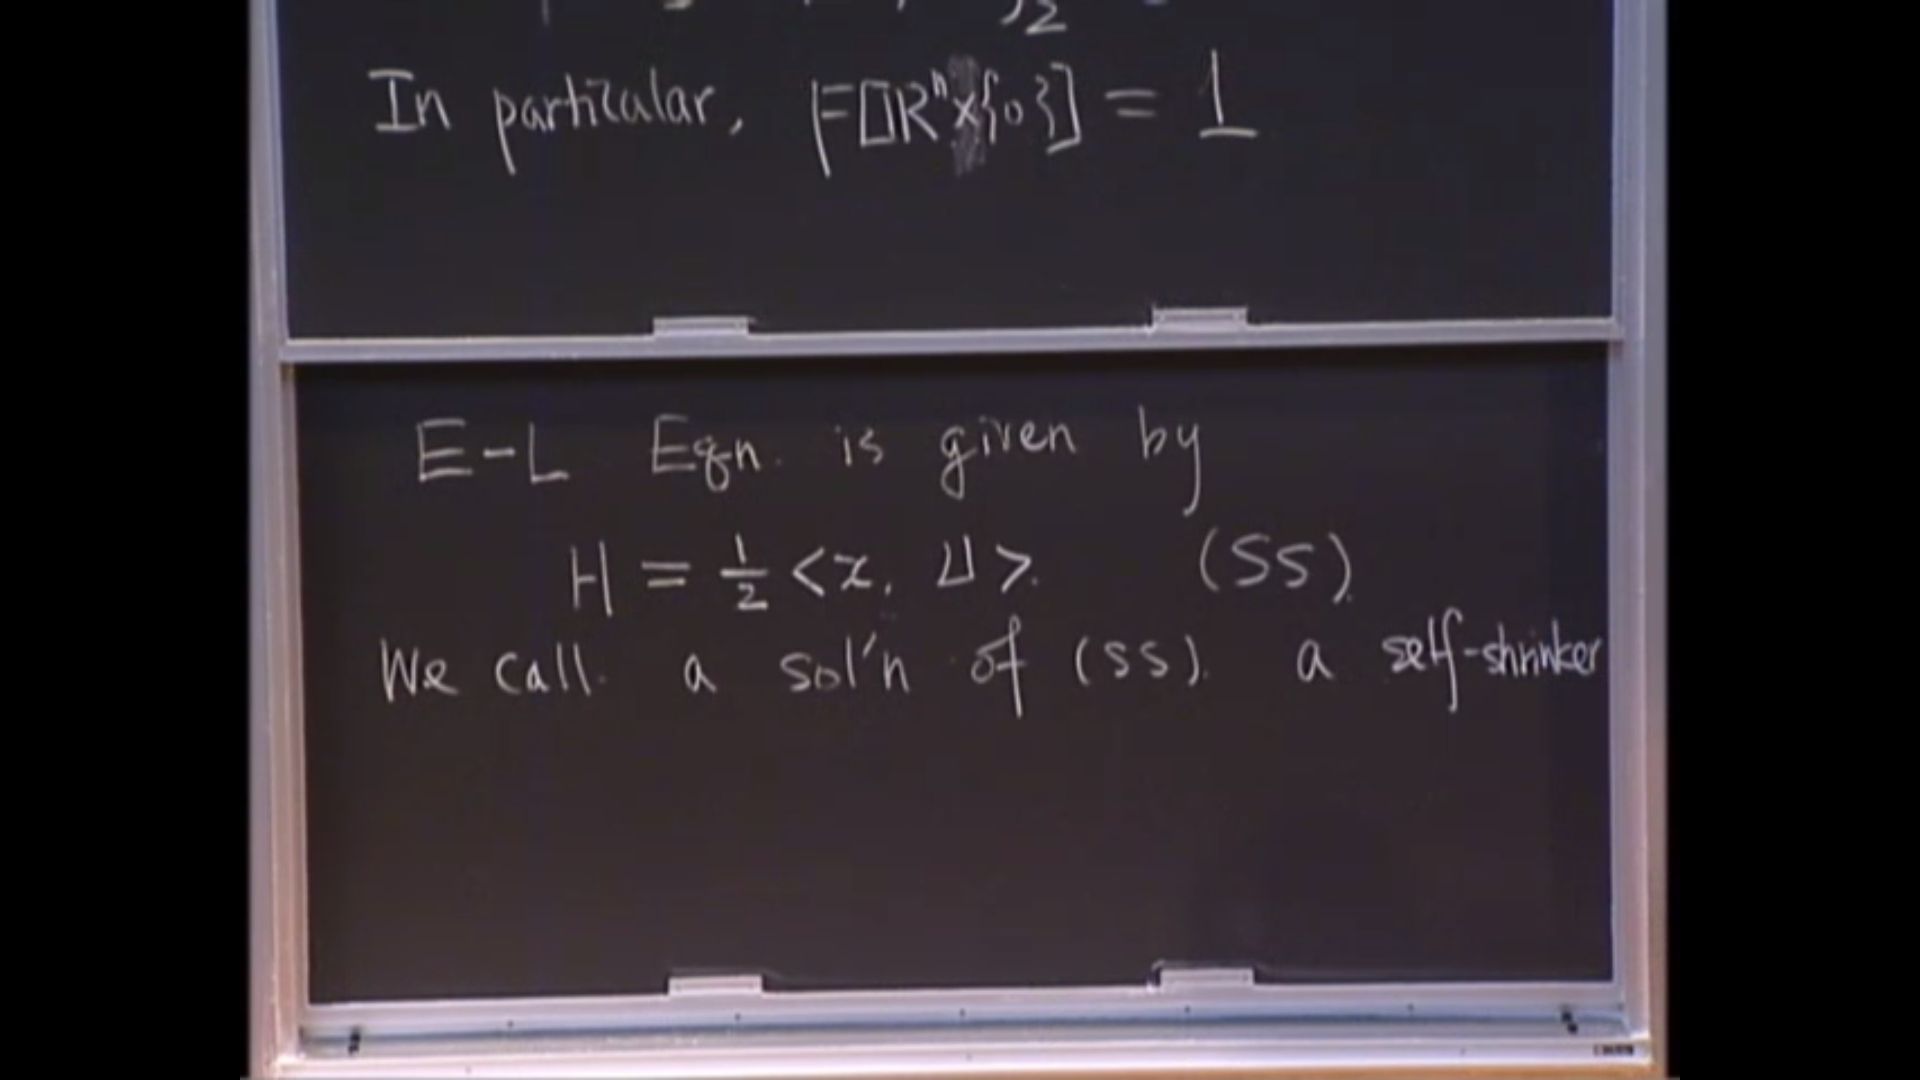 In particular, F[ℝⁿ×{0}] = 1
E-L Eqn. is given by
H = 1/2 <x, ν>. (SS).
We call a sol'n of (SS). a self-shrinker